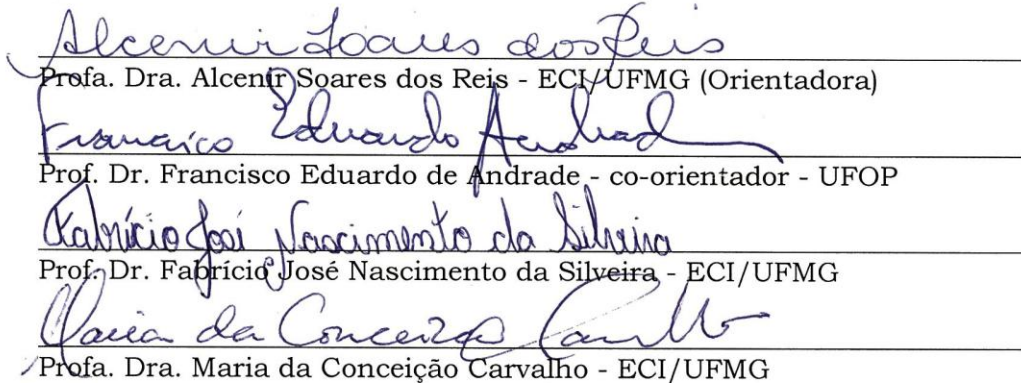 Alcenir Soares dos Reis
Profa. Dra. Alcenir Soares dos Reis - ECI/UFMG (Orientadora)
Francisco Eduardo Andrade
Prof. Dr. Francisco Eduardo de Andrade - co-orientador - UFOP
Fabrício José Nascimento da Silveira
Prof. Dr. Fabrício José Nascimento da Silveira - ECI/UFMG
Maria da Conceição Carvalho
Profa. Dra. Maria da Conceição Carvalho - ECI/UFMG